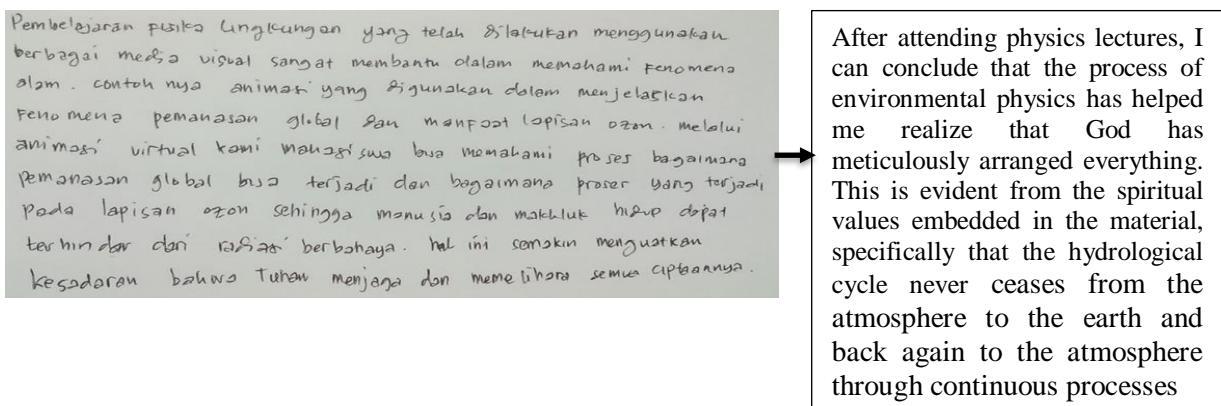 Pembelajaran fisika lingkungan yang telah dilakukan menggunakan
berbagai media visual sangat membantu dalam memahami Fenomena
alam. contoh nya animasi yang digunakan dalam menjelaskan
Fenomena pemanasan global dan manfaat lapisan ozon. melalui
animasi virtual kami mahasiswa bisa memahami proses bagaimana
pemanasan global bisa terjadi dan bagaimana proses yang terjadi
pada lapisan ozon sehingga manusia dan makhluk hidup dapat
terhindar dari radiasi berbahaya. hal ini semakin menguatkan
kesadaran bahwa Tuhan menjaga dan memelihara semua ciptaannya.
After attending physics lectures, I
can conclude that the process of
environmental physics has helped
me realize that God has
meticulously arranged everything.
This is evident from the spiritual
values embedded in the material,
specifically that the hydrological
cycle never ceases from the
atmosphere to the earth and
back again to the atmosphere
through continuous processes